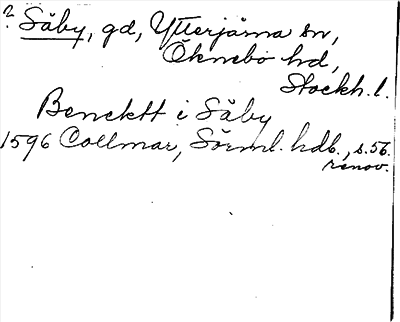 ? Säby, gd, Ytterjärna sn,
Öknebo hd,
Stockh. l.
Bencktt i Säby
1596 Collmar, Sörml. hdb., s. 56.
renov.